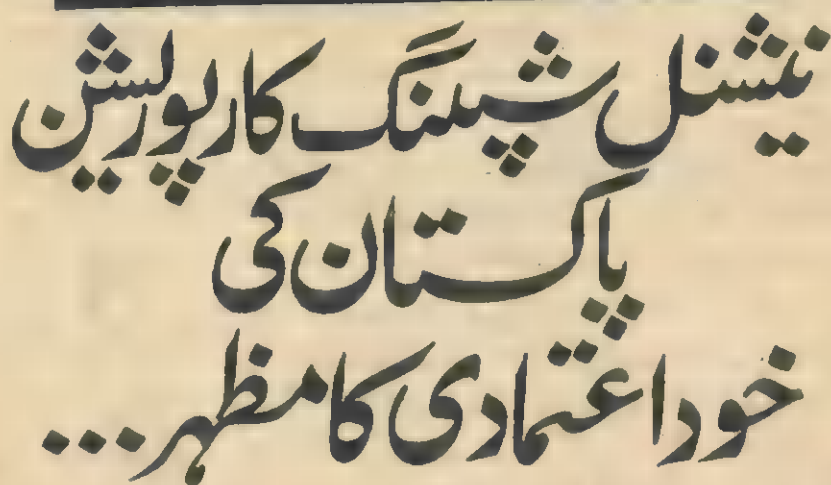 نیشنل شپنگ کارپوریشن
پاکستان کی
خود اعتمادی کا مظہر...